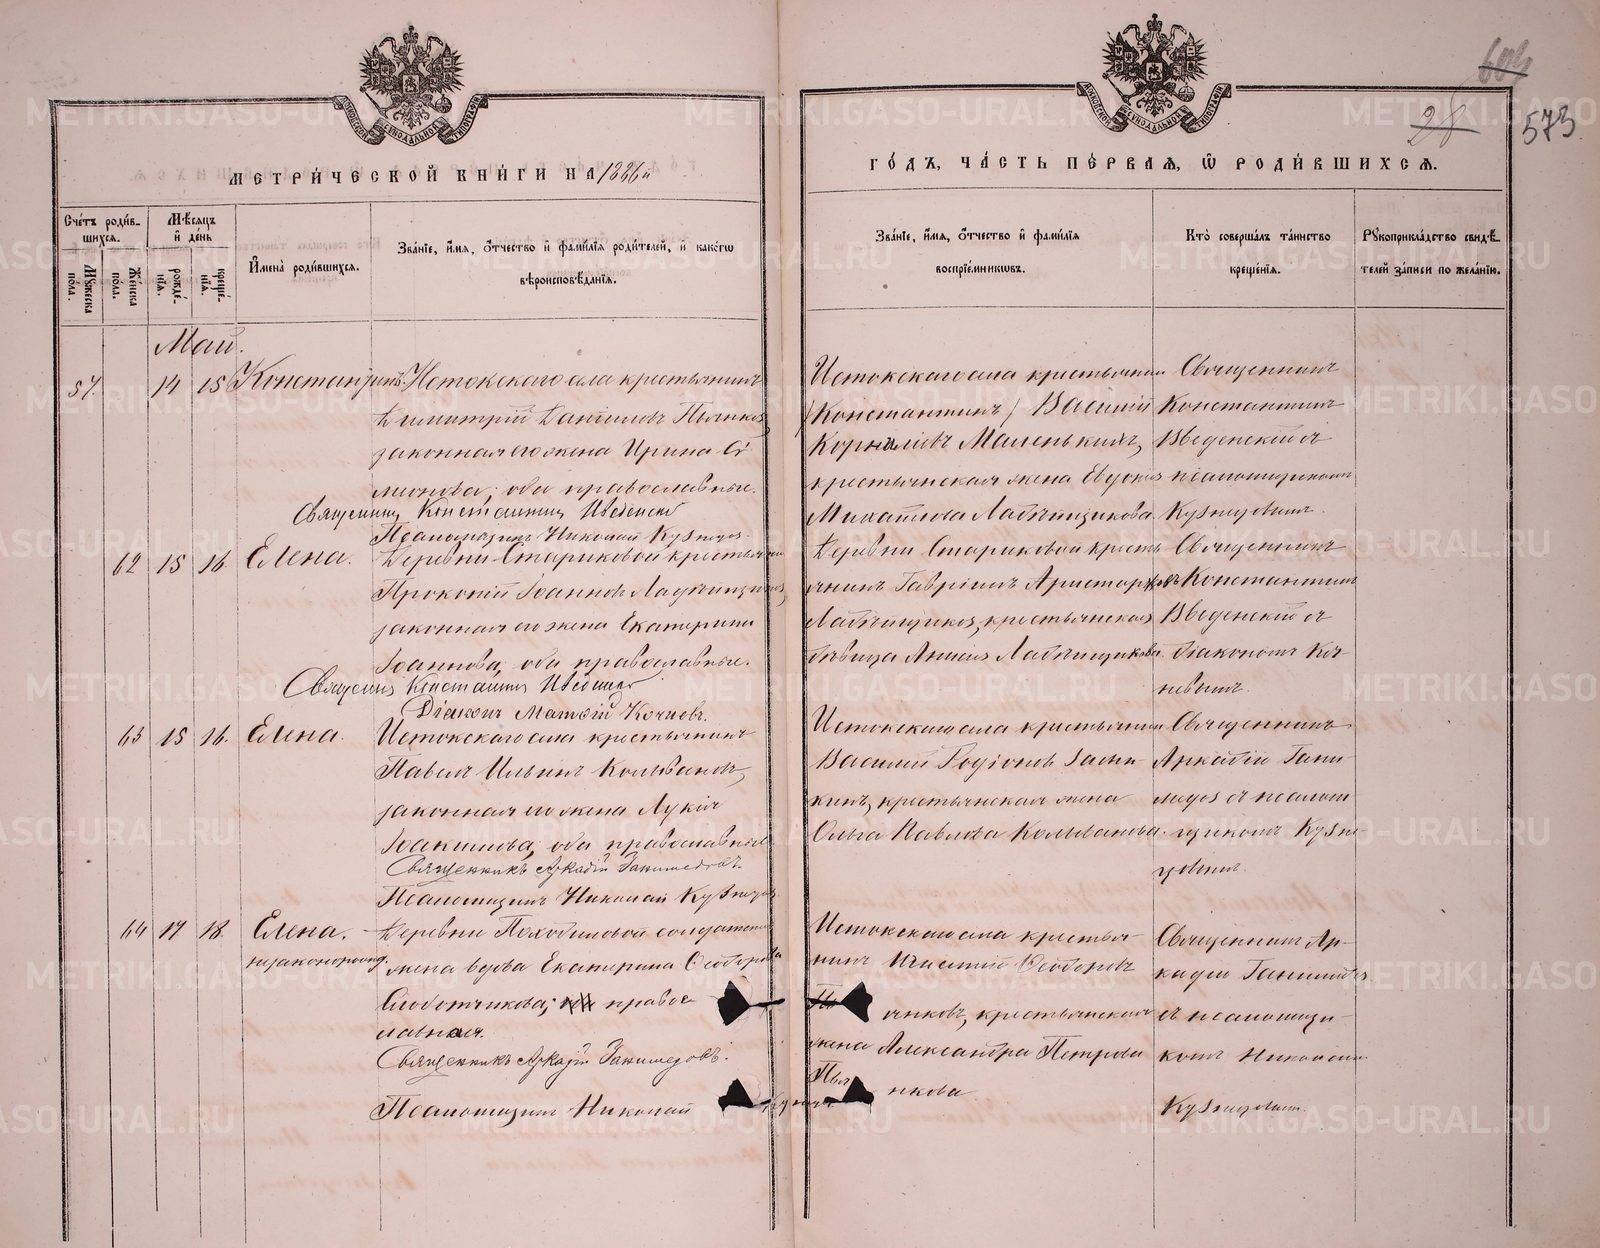 МЕТРИ́ЧЕСКОЙ КНИ́ГИ НА 1886й
ГО́ДЪ, ЧА́СТЬ ПЕ́РВАЯ, Ѽ РОДИ́ВШИХСЯ.
28
573
Сче́тъ роди́в-
шихся.
Му́жеска по́ла.
Же́нска по́ла.
Мѣ́сяцъ и҆ де́нь
рожде́нїя.
креще́нїя.
И҆мена̀ роди́вшихся.
Зва́нїе, и҆́мя, ѻ҆́тчество и҆ фами́лїя роди́телей, и҆ како́гѡ
вѣроисповѣ́данїя.
Зва́нїе, и҆́мя, ѻ҆́тчество и҆ фами́лїя
воспрїе́мникѡвъ.
Кто̀ соверша́лъ та́инство
креще́нїя.
Рꙋкоприкла́дство свидѣ́-
телей за́писи по жела́нїю.
Май.
57. 14 15 Константинъ. Истокскаго села крестьянинъ
Димитрій Даніиловъ Пьянковъ,
законная его жена Ирина Си
меонова; оба православные.
Священникъ Константинъ Введенскій
Псаломщикъ Николай Кузнецовъ.
Истокскаго села крестьянинъ
(Константинъ) Василій
Корниліевъ Маленькихъ,
крестьянская жена Евдокія
Михайлова Лабѣнщикова.
Священникъ
Константинъ
Введенскій съ
псаломщикомъ
Кузнецовымъ.
62 15 16. Елена. Деревни Стариковой крестьянинъ
Прокопій Іоанновъ
законная его жена Екатерина
Іоаннова; оба православные.
Священникъ Константинъ Введенскій
Діаконъ Матѳій Кочневъ.
Деревни Стариковой кресть
янинъ Гавріилъ Аристарховъ
крестьянская
дѣвица Анисія
Священникъ
Константинъ
Введенскій съ
діакономъ Коч-
невымъ.
63 15 16. Елена. Истокскаго села крестьянинъ
Павелъ Ильинъ Колывановъ,
законная его жена Лукія
Іоакимова; оба православные.
Священникъ Аркадій Ганимедовъ
Псаломщикъ Николай Кузнецовъ
Истокскаго села крестьянинъ
Василій Родіоновъ
крестьянская жена
Ольга Павлова Колыванова.
Священникъ
Аркадій Гани-
медовъ съ псалом
щикомъ Кузне-
цовымъ.
64 17 18. Елена. Деревни Походиловой солдатская
незаконорожд. жена вдова Екатерина Ѳеодорова
Слоботчикова; правос
лавная.
Священникъ Аркадій Ганимедовъ.
Псаломщикъ Николай
Истокскаго села крестья-
нинъ Игнатій Ѳеодоровъ
Пь янковъ, крестьянская
жена Александра Петрова
Пья нкова
Священникъ Ар-
кадій Ганимедовъ
съ псаломщи-
комъ Николаемъ
Кузнецовымъ.
METRIKI.GASO-URAL.RU